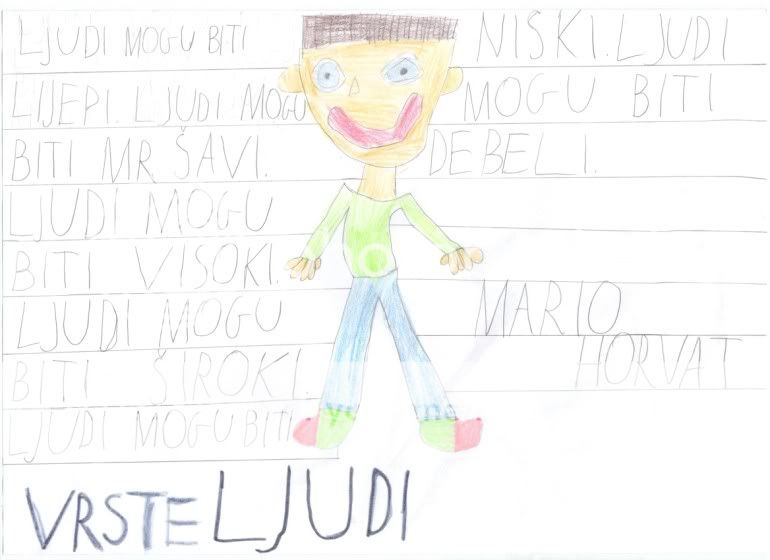 LJUDI MOGU BITI
LIJEPI. LJUDI MOGU
BITI MRŠAVI.
LJUDI MOGU
BITI VISOKI.
LJUDI MOGU
BITI ŠIROKI.
LJUDI MOGU BITI
NISKI. LJUDI
MOGU BITI
DEBELI.
MARIO
HORVAT
VRSTE LJUDI